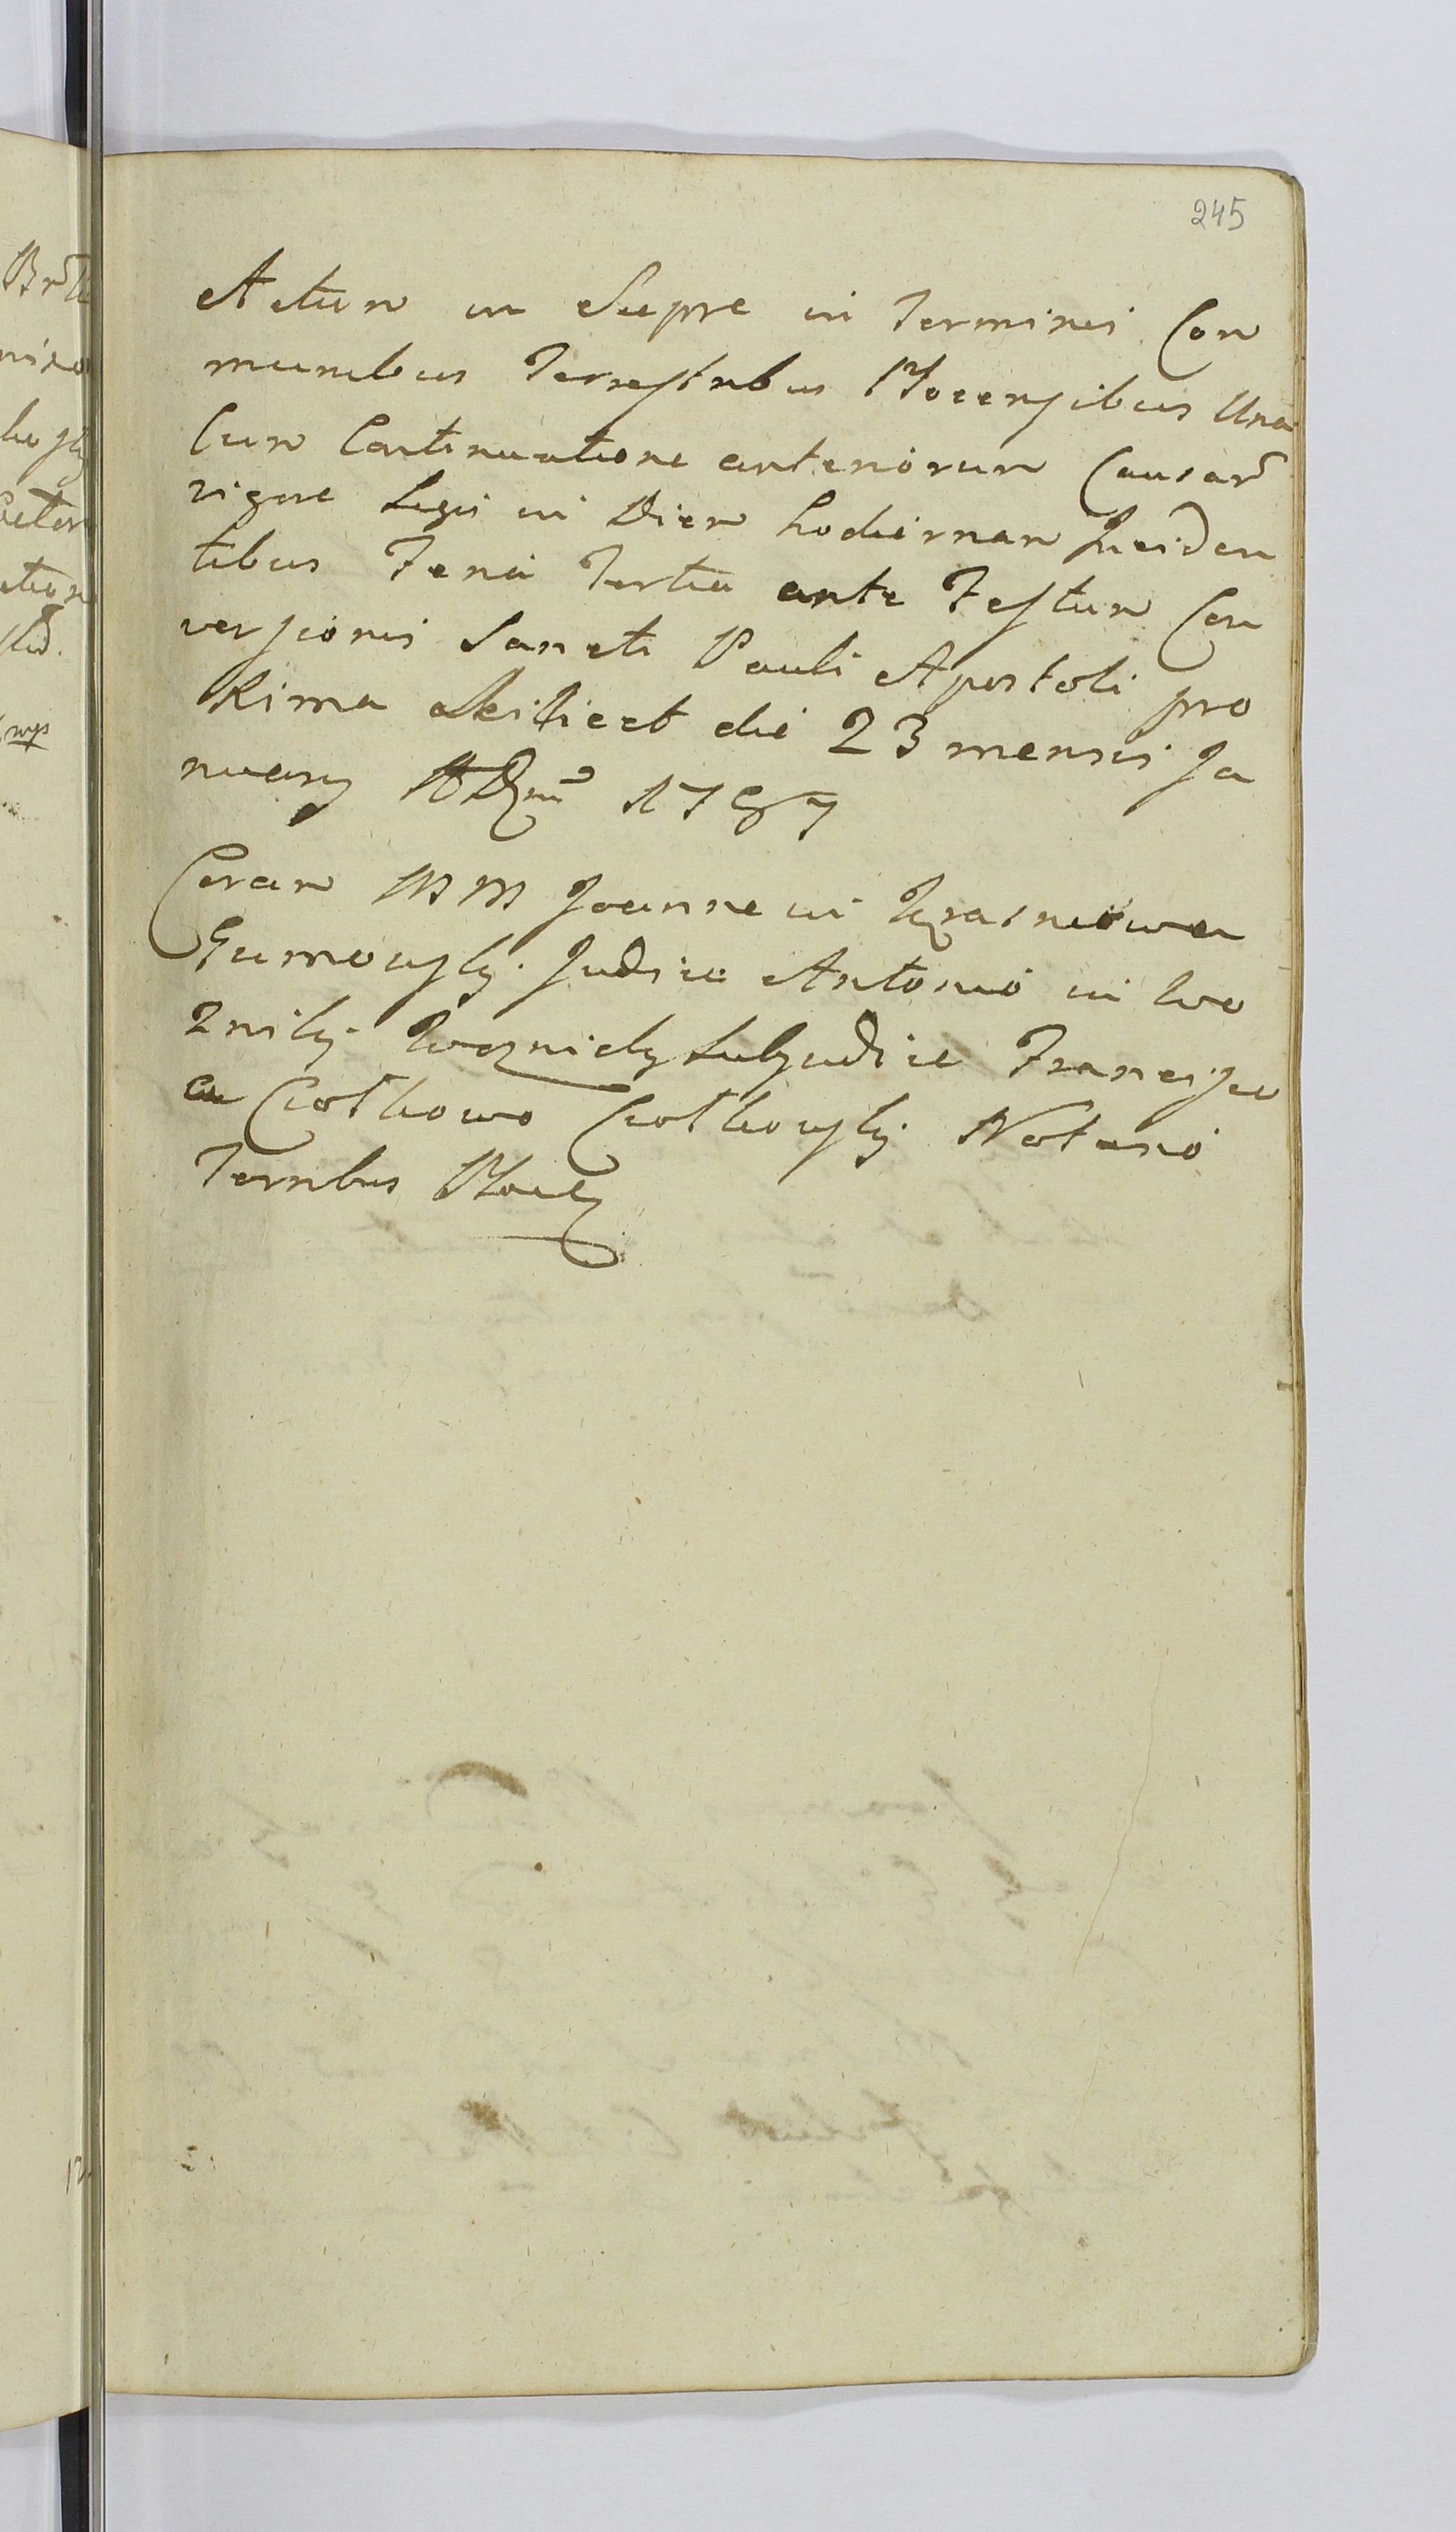 245
Actum in Sierpc in Terminis Com
munibus Terrestribus Plocensibus Una
Cum Continuatione anteriorum Causar
vigore Legis in Diem hodiernam Inciden
tibus Feria Tertia ante Festum Con
versionis Sancti Pauli Apostoli pro
xima scilicet die 23 mensis Ja
nuarij 1787
Coram MM Joanne in
Gumowski Judice Antonio in
Subjudice Francisco
a Ciołkowo Ciołkowski Notario
Terribus Plocen